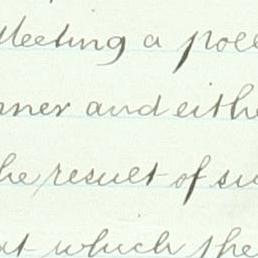 Meeting a poll
nner and eithe
he result of su
at which the